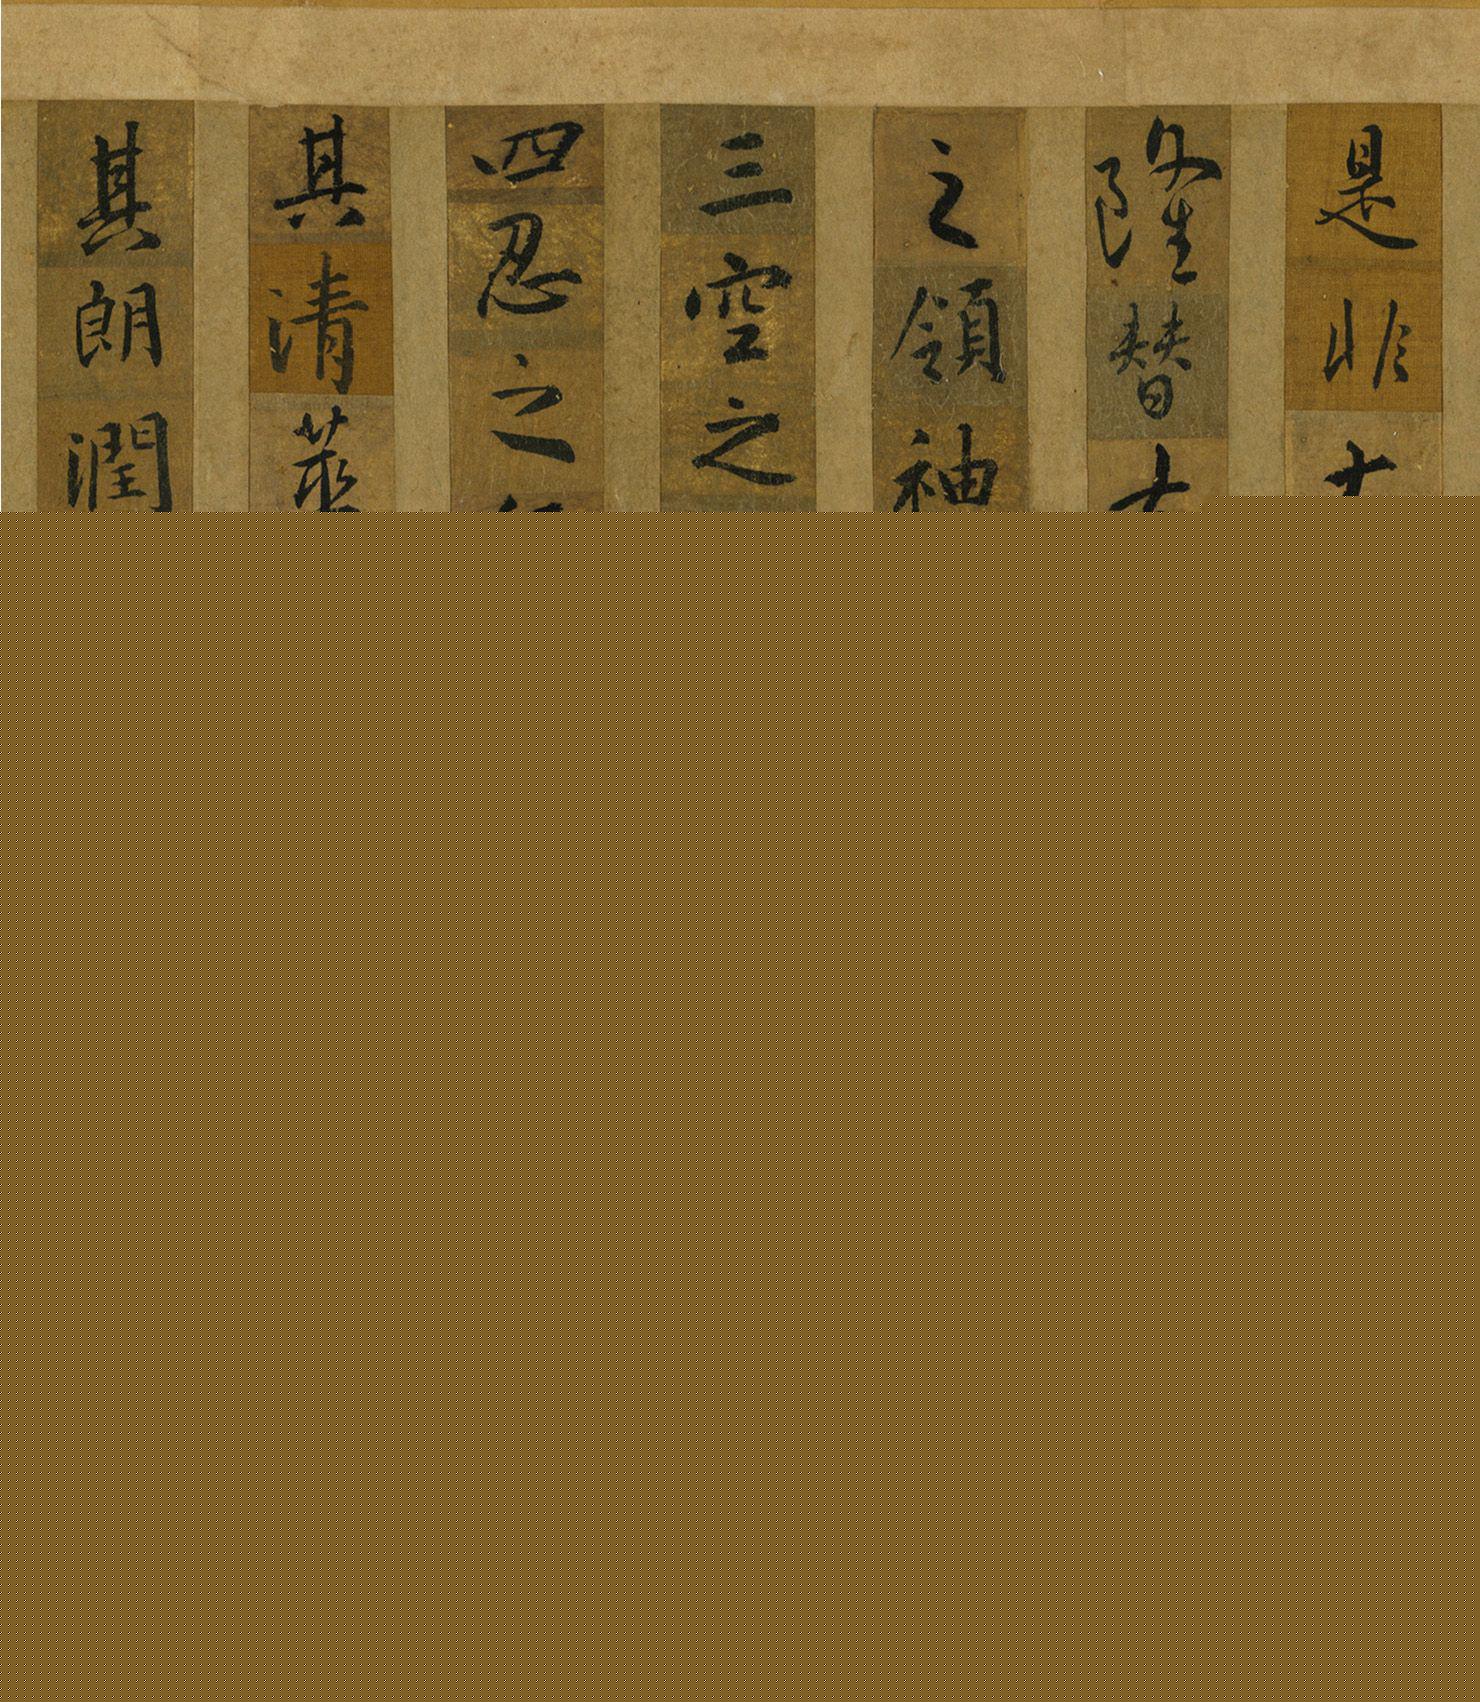 是非
隆替
之領袖
三空之
四忍之
其清華
其朗潤